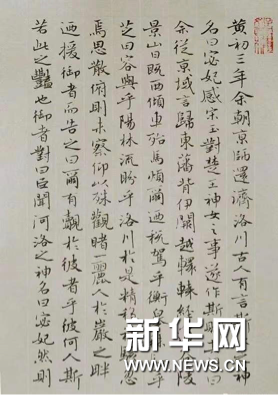 黄初三年余朝京師還濟洛川古人有言斯神
名曰宓妃感宋玉對楚王神女之事遂作斯曰
余從京域言歸東藩背伊闕越轘轅經谷陵
景山日既西傾車殆馬煩爾迺稅駕乎蘅皋乎
芝田容與乎陽林流盼乎洛川於是精移駭忽
焉思散俯則未察仰以殊觀睹一麗人於巖之畔
迺援御者而告之曰爾有覿於彼者乎彼何人斯
若此之豔也御者對曰臣聞河洛之神名曰宓妃然則
新华网
WWW.NEWS.CN